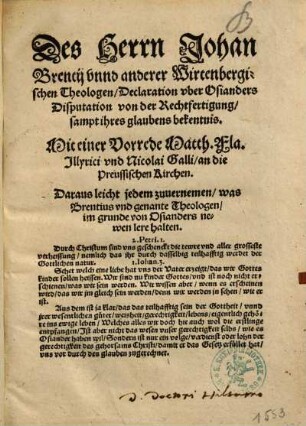 Des Herrn Johan
Brentij vnnd anderer Wirtenbergi-
schen Theologen/Declaration vber Osianders
Disputation von der Rechtfertigung/
sampt ihres glaubens bekentnis.
Mit einer Vorrede Matth. Fla.
Illyrici vnd Nicolai Galli/an die
Preussischen Kirchen.
Daraus leicht jedem zuuernemen/was
Brentius vnd genante Theologen/
im grunde von Osianders ne-
wen lere halten.
2. Petri. 1.
Durch Christum sind vns geschenckt die tewre vnd aller grösseste
verheissung/nemlich das ihr durch dasselbig teilhafftig werdet der
Göttlichen natur.
1. Johan. 3.
Sehet welch eine liebe hat vns der Vater erzeigt/das wir Gottes
kinder sollen heissen. Wir sind nu kinder Gottes/vnd ist noch nicht er-
schienen/was wir sein werden. Wir wissen aber/wenn es erscheinen
wird/das wir jm gleich sein werden/denn wir werden jn sehen/wie er
ist.
Aus dem ist ja klar/das das teilhafftig sein der Gottheit/vnd
jrer wesentlichen güter/weisheit/gerechtigkeit/lebens/eigentlich gehö-
re ins ewige leben/Welches alles wir doch hie auch wol die erstlinge
empfangen/Ist aber nicht das wesen vnser gerechtigkeit selbs/wie es
Osiander haben wil/Sondern ist nur ein volge/verdienst oder lohn der
gerechtigkeit des gehorsams Christi/damit er das Gesetz erfüllet hat/
vns vor durch den glauben zugerechnet.
1553